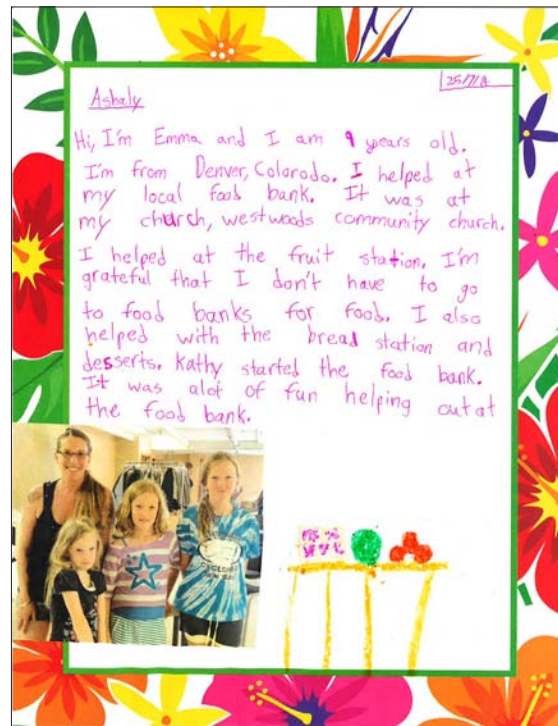 Ashaly
Hi, I'm Emma and I am 9 years old.
I'm from Denver, Colorodo. I helped at
my local food bank. It was at
my church, westwoods community church.
I helped at the fruit station. I'm
grateful that I don't have to go
to food banks for food. I also
helped with the bread station and
desserts. Kathy started the food bank.
It was alot of fun helping out at
the food bank.